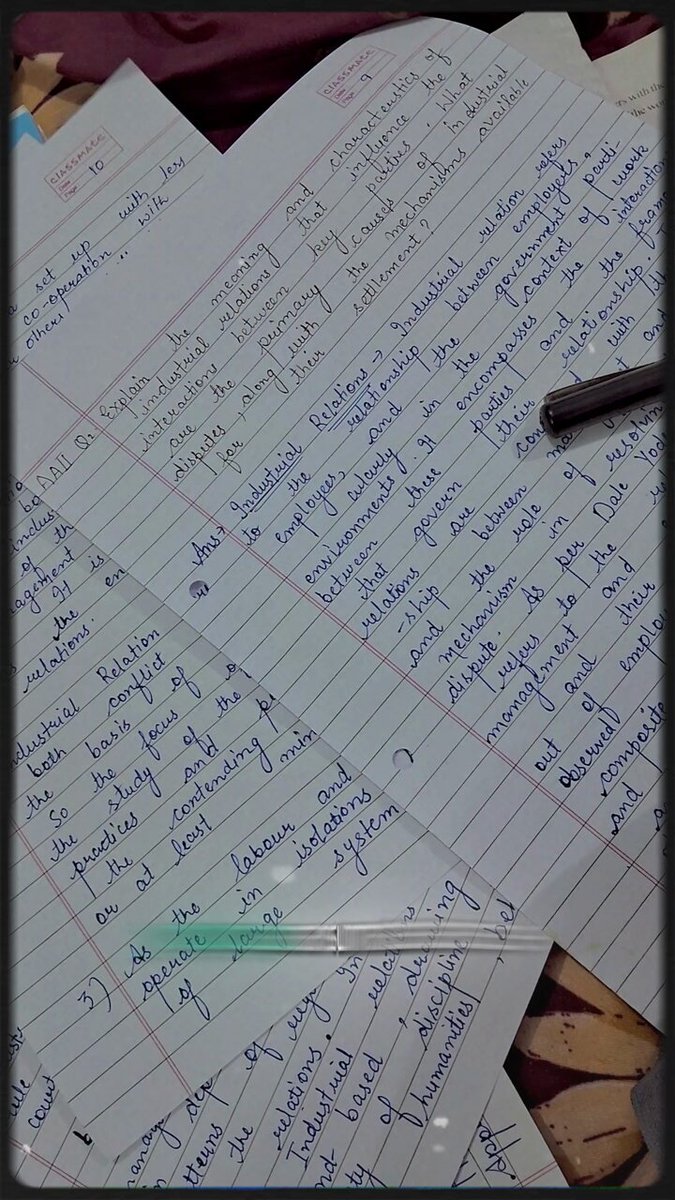 CLASSMATE
Date
Page 9
Explain the meaning and characteristics of
industrial relations that influence the
interactions between parties. What
are the primary key causes of industrial
disputes, along with the mechanisms available
for their settlement?
AAII Q2
Ans→ Industrial Relations → Industrial relation refers
to the relationship between employers,
employees, and the government, parti-
cularly in the context of work
environments. It encompasses the interaction
between these parties and the
that govern their relationship.
relations are
-ship between
and the role of
mechanism in resolving
dispute. As per Dale Yod
refers to the
management and
out of employ
observed
composite
and
CLASSMATE
Date
Page 10
set up with less
co-operation with
others!
indus
of the
nagement It is
the en
relations.
ndustrial Relation
both conflict
the basis of
So the focus of the
the study of
practices and
the contending
or at least min
3) As the labour and
operate in isolations
of large system
of
relations.
Industrial
based, deriving
of discipline
humanities, bel
the
count
App